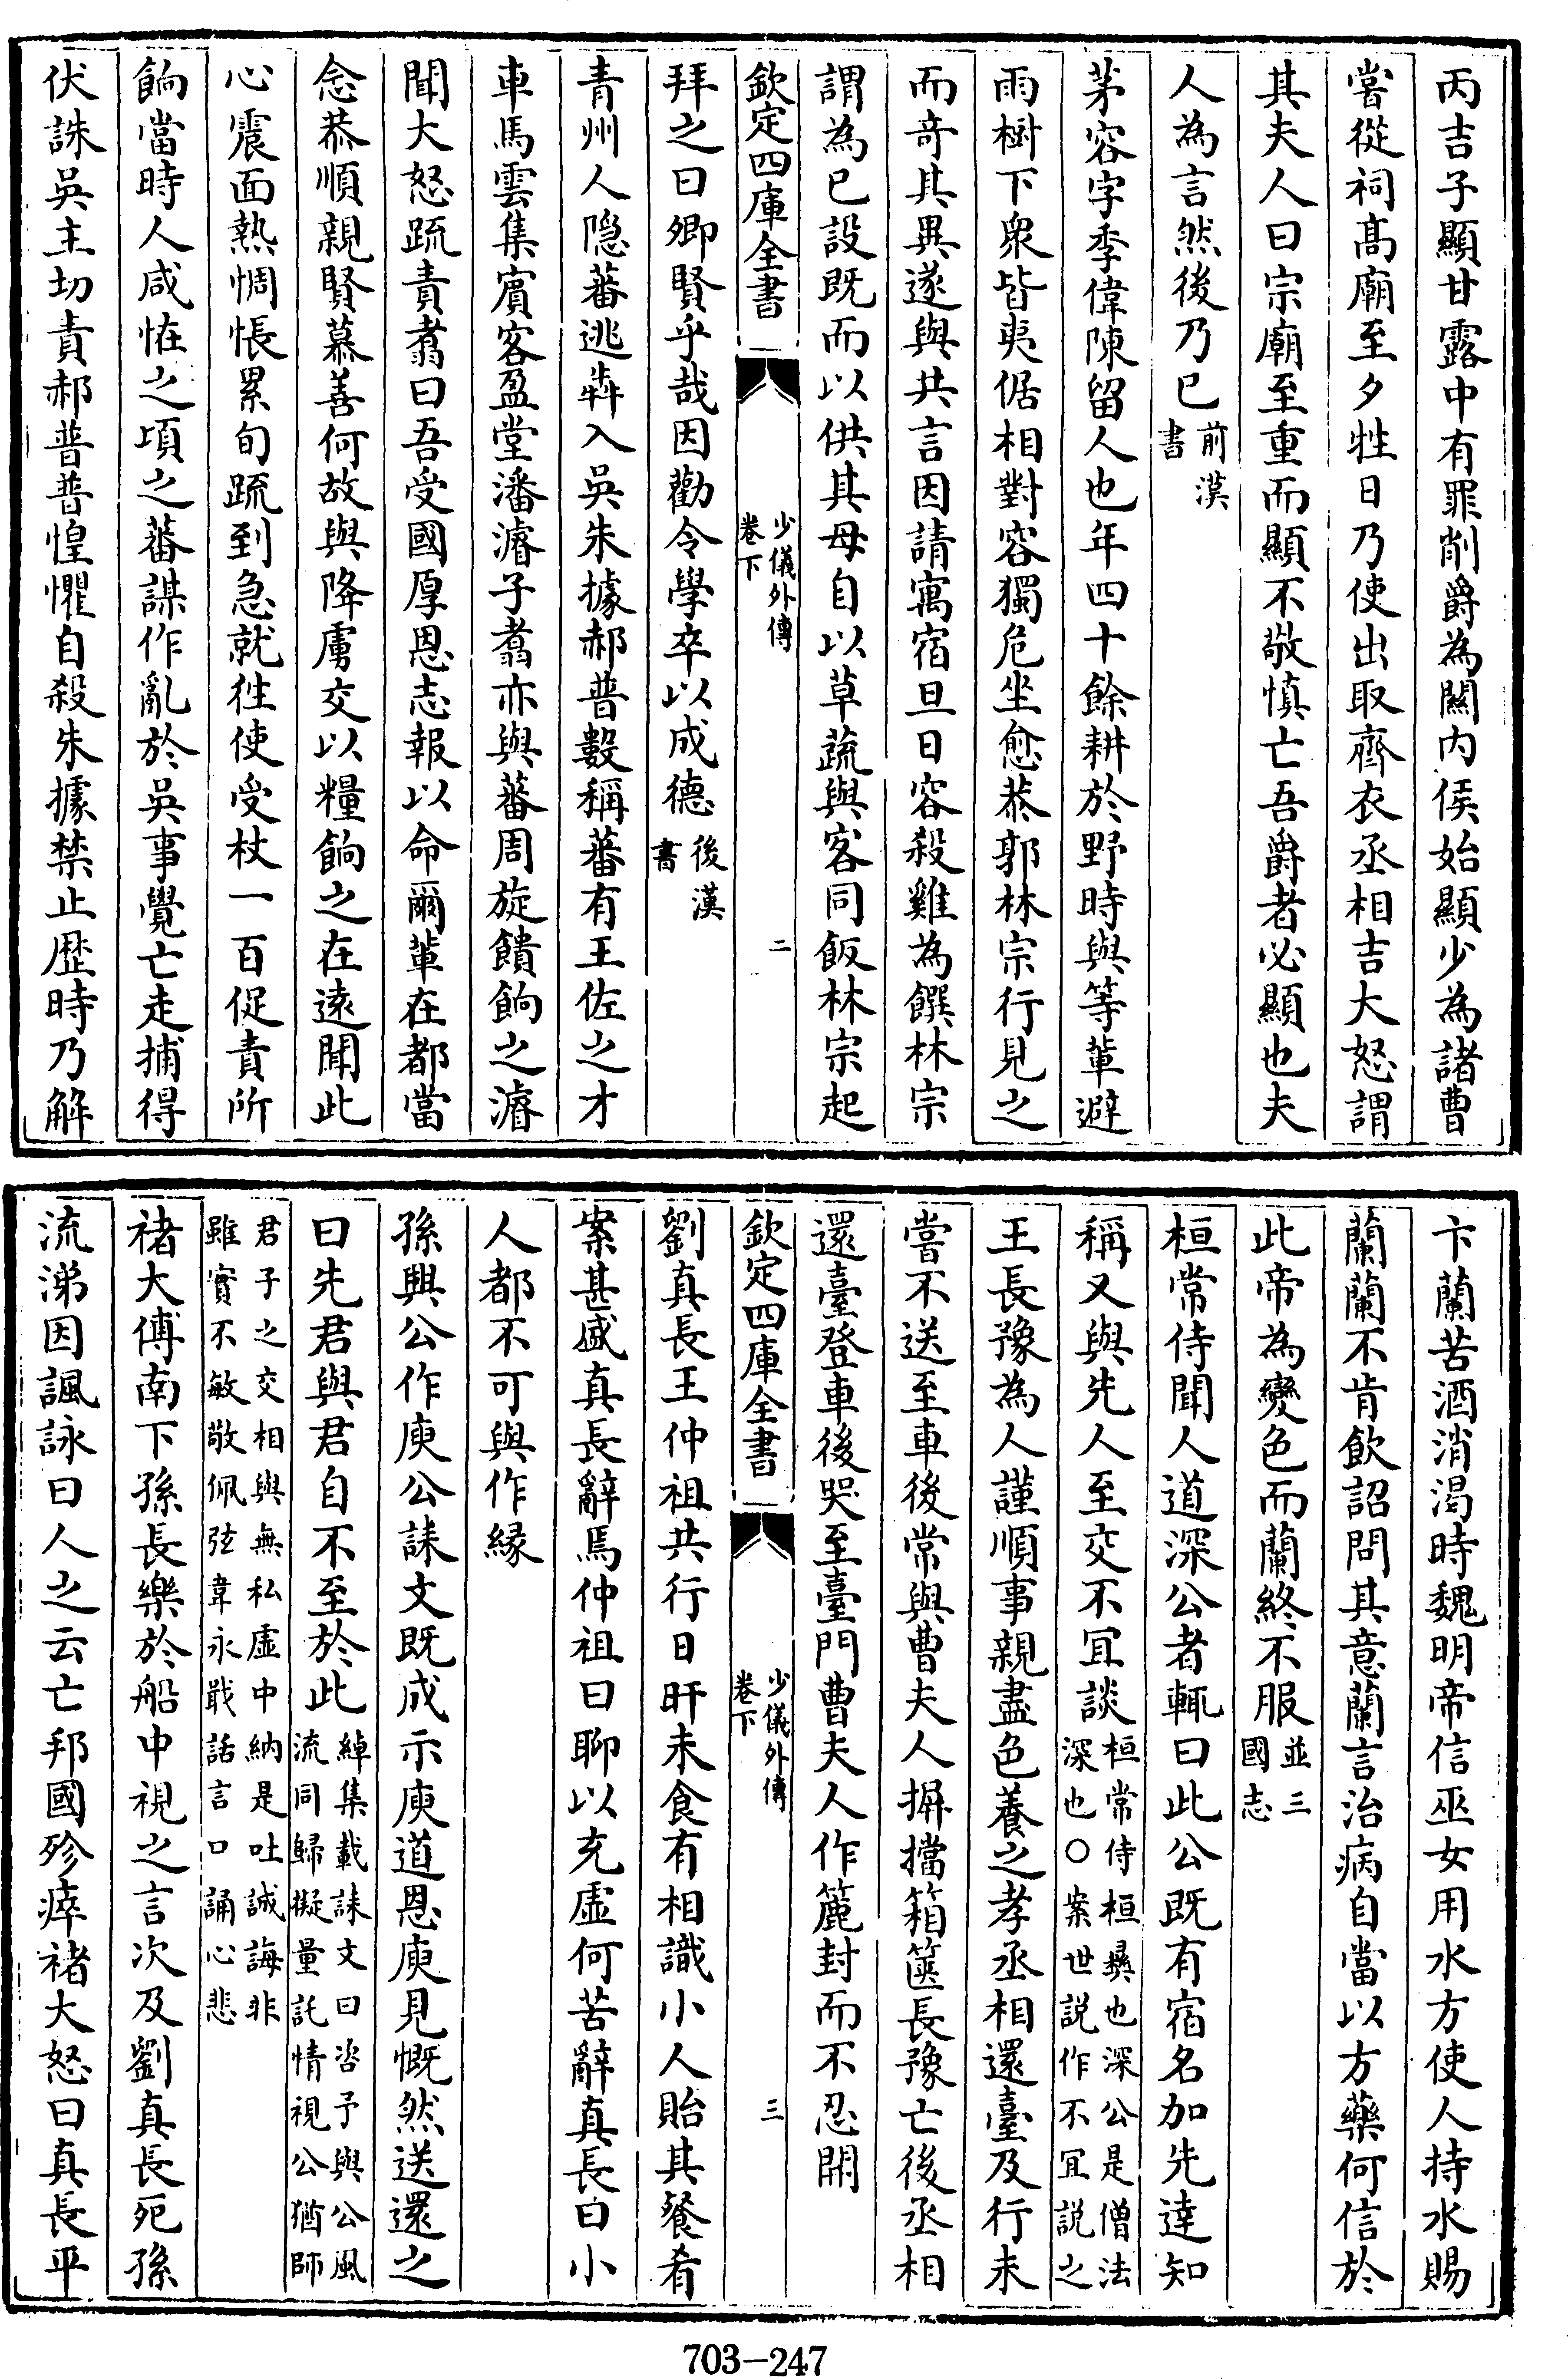 丙吉子顯甘露中有罪削爵為關内侯始顯少為諸曹
嘗從祠髙廟至夕牲日乃使出取齋衣丞相吉大怒謂
其夫人曰宗廟至重而顯不敬慎亡吾爵者必顯也夫
人為言然後乃已前漢書
茅容字季偉陳留人也年四十餘耕於野時與等輩避
雨樹下衆皆夷倨相對容獨危坐愈恭郭林宗行見之
而竒其異遂與共言因請寓宿旦日容殺雞為饌林宗
謂為已設既而以供其母自以草蔬與客同飯林宗起
欽定四庫全書 少儀外傳卷下 二
拜之曰卿賢乎哉因勸令學卒以成德後漢書
青州人隐蕃逃犇入吳朱據郝普數稱蕃有王佐之才
車馬雲集賓客盈堂潘濬子翥亦與蕃周旋饋餉之濬
聞大怒疏責翥曰吾受國厚恩志報以命爾輩在都當
念恭順親賢慕善何故與降虜交以糧餉之在逺聞此
心震面熱惆悵累旬疏到急就往使受杖一百促責所
餉當時人咸怪之頃之蕃謀作亂於吳事覺亡走捕得
伏誅吳主切責郝普普惶懼自殺朱據禁止歴時乃解
卞蘭苦酒消渴時魏明帝信巫女用水方使人持水賜
蘭蘭不肯飲詔問其意蘭言治病自當以方藥何信於
此帝為變色而蘭終不服並三國志
桓常侍聞人道深公者輒曰此公既有宿名加先達知
稱又與先人至交不宜談桓常侍桓彞也深公是僧法深也○案世説作不宜説之
王長豫為人謹順事親盡色養之孝丞相還臺及行未
嘗不送至車後常與曹夫人摒擋箱篋長豫亡後丞相
還臺登車後哭至臺門曹夫人作簏封而不忍開
欽定四庫全書 少儀外傳卷下 三
劉真長王仲祖共行日旰未食有相識小人貽其餐肴
案甚盛真長辭焉仲祖曰聊以充虚何苦辭真長曰小
人都不可與作縁
孫興公作庾公誄文既成示庾道恩庾見慨然送還之
曰先君與君自不至於此綽集載誄文曰咨予與公風流同歸擬量託情視公猶師
君子之交相與無私虚中納是吐誠誨非雖實不敏敬佩弦韋永戢話言口誦心悲
禇大傅南下孫長樂於船中視之言次及劉真長死孫
流涕因諷詠曰人之云亡邦國殄瘁禇大怒曰真長平
703-247